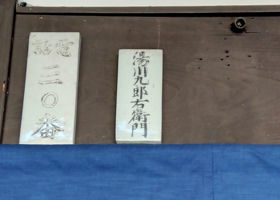 電話
三〇番
湯川九郎右衛門